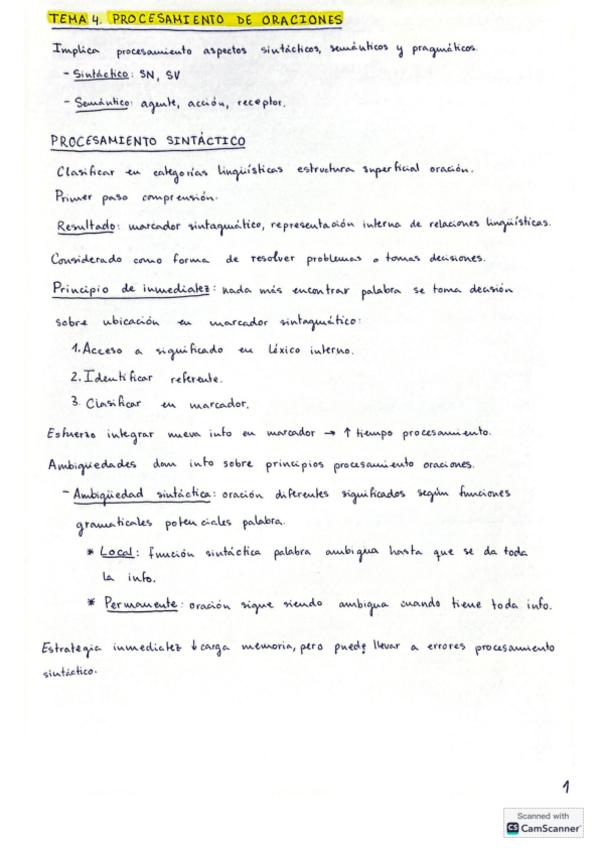 TEMA 4. PROCESAMIENTO DE ORACIONES
Implica procesamiento aspectos sintácticos, semánticos y pragmáticos.
- Sintáctico: SN, SV
- Semántico: agente, acción, receptor.
PROCESAMIENTO SINTÁCTICO
Clasificar en categorías lingüísticas estructura superficial oración.
Primer paso comprensión.
Resultado: marcador sintagmático, representación interna de relaciones lingüísticas.
Considerado como forma de resolver problemas o tomas decisiones.
Principio de inmediatez: nada más encontrar palabra se toma decisión
sobre ubicación en marcador sintagmático:
1. Acceso a significado en léxico interno.
2. Identificar referente.
3. Clasificar en marcador.
Esfuerzo integrar nueva info en marcador → ↑ tiempo procesamiento.
Ambigüedades dan info sobre principios procesamiento oraciones.
- Ambigüedad sintáctica: oración diferentes significados según funciones
gramaticales potenciales palabra.
* Local: función sintáctica palabra ambigua hasta que se da toda
la info.
* Permanente: oración sigue siendo ambigua cuando tiene toda info.
Estrategia inmediatez ↓ carga memoria, pero puede llevar a errores procesamiento
sintáctico.
1
Scanned with
CS CamScanner